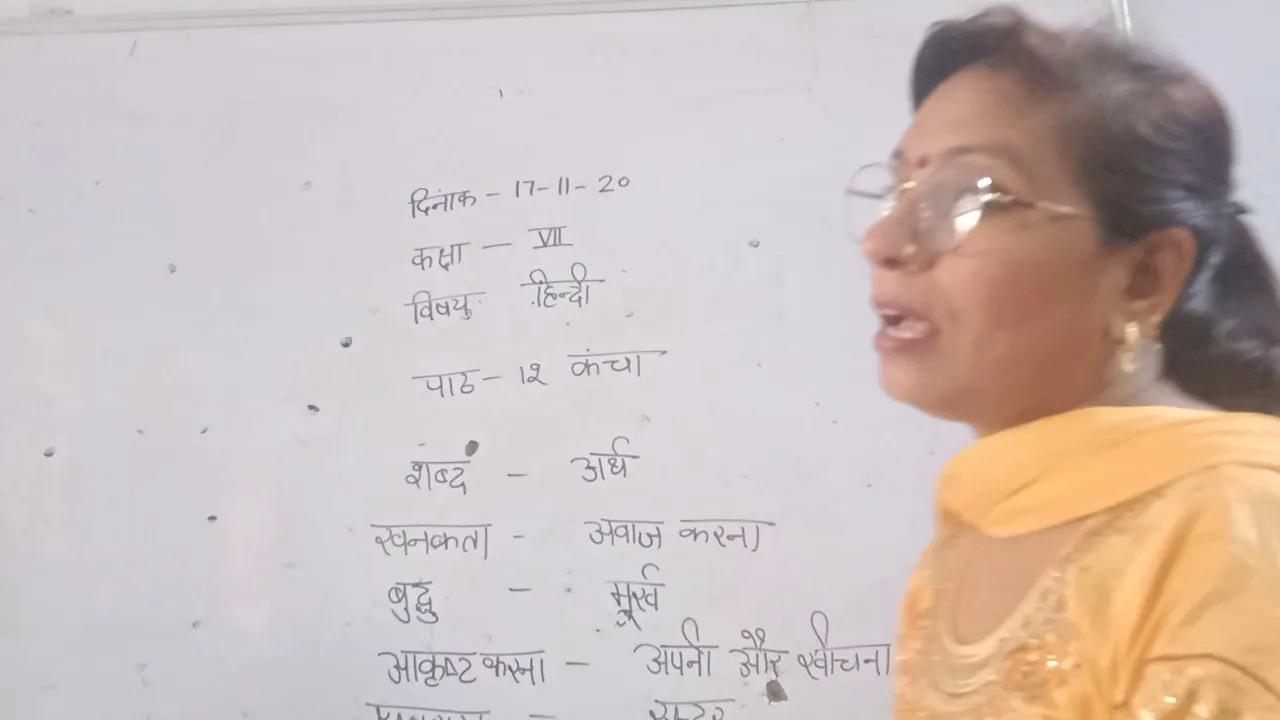 दिनांक - 17-11-20
कक्षा - VII
विषय हिन्दी
पाठ - 12 कंचा
शब्द - अर्थ
खनकता - अवाज करना
बुद्धु - मूर्ख
आकृष्ट करना - अपनी और खीचना